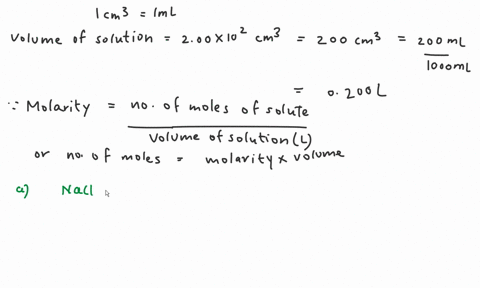 1 cm³ = 1mL
Volume of solution = 2.00×10² cm³ = 200 cm³ = 200 mL
1000mL
= 0.200L
∵ Molarity = no. of moles of solute
Volume of solution (L)
or no. of moles = molarity × volume
a) NaCl